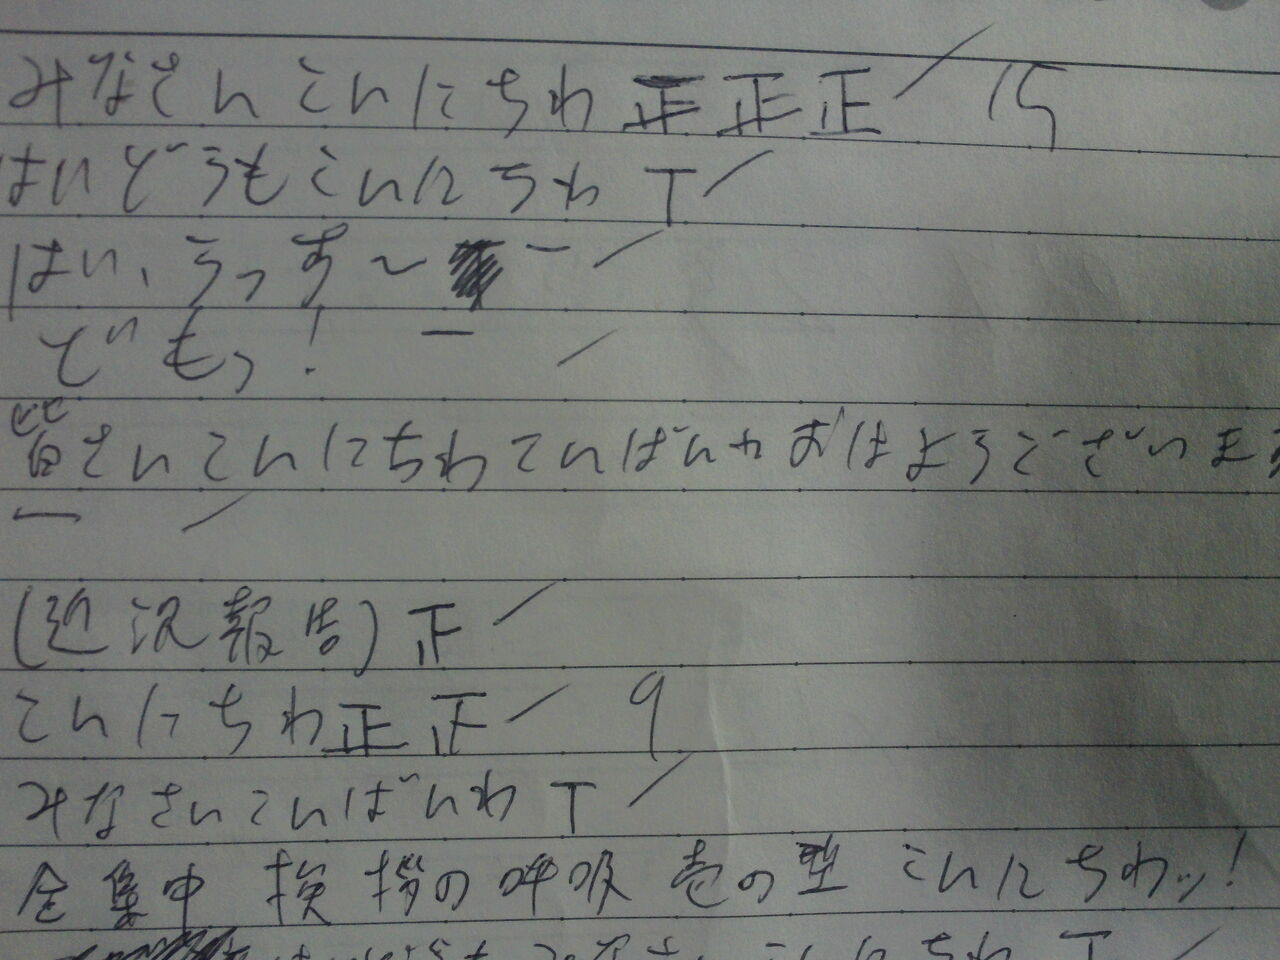 みなさんこんにちわ 正正正 15
はいどうもこんにちわ T
はい、うっす〜 一
どもっ! 一
皆さんこんにちわこんばんわおはようございます
一
(近況報告) 正
こんにちわ 正正 9
みなさんこんばんわ T
全集中 挨拶の呼吸 壱の型 こんにちわッ!
こんにちわ T